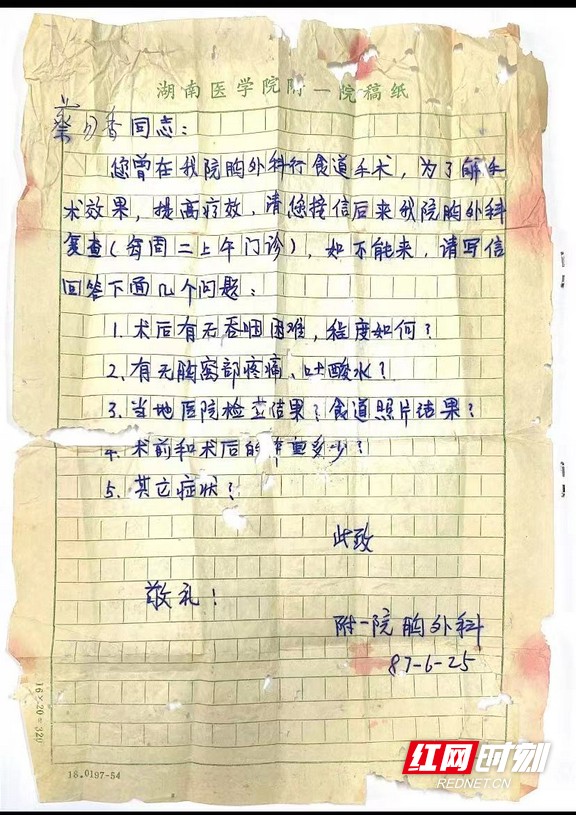 湖南医学院附一院稿纸
蔡月香同志：
您曾在我院胸外科行食道手术，为了解手
术效果，提高疗效，请您接信后来我院胸外科
复查（每周二上午门诊），如不能来，请写信
回答下面几个问题：
1. 术后有无吞咽困难，程度如何？
2. 有无胸窝部疼痛、吐酸水？
3. 当地医院检查结果？食道照片结果？
4. 术前和术后的体重多少？
5. 其它症状？
此致
敬礼！
附一院胸外科
87-6-25
16×20=320
18.0197-54
红网时刻
REDNET.CN